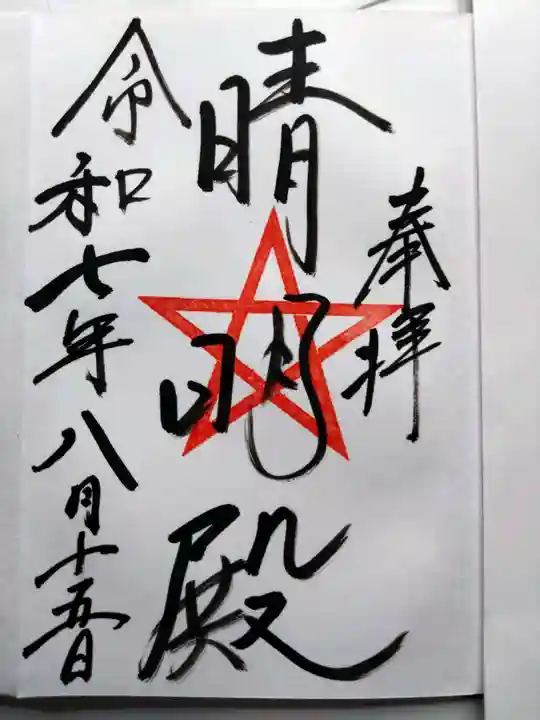 奉拝
晴明殿
令和七年八月十五日